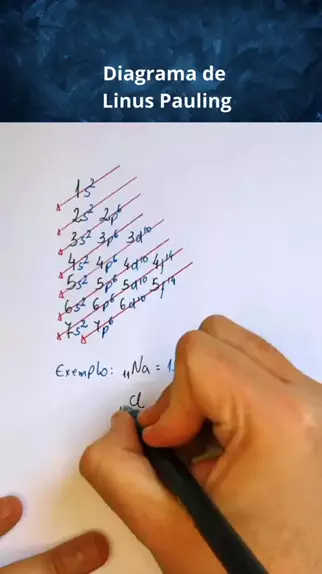 Diagrama de
Linus Pauling
1s²
2s² 2p⁶
3s² 3p⁶ 3d¹⁰
4s² 4p⁶ 4d¹⁰ 4f¹⁴
5s² 5p⁶ 5d¹⁰ 5f¹⁴
6s² 6p⁶ 6d¹⁰
7s² 7p⁶
Exemplo: ₁₁Na = 1s
Cl